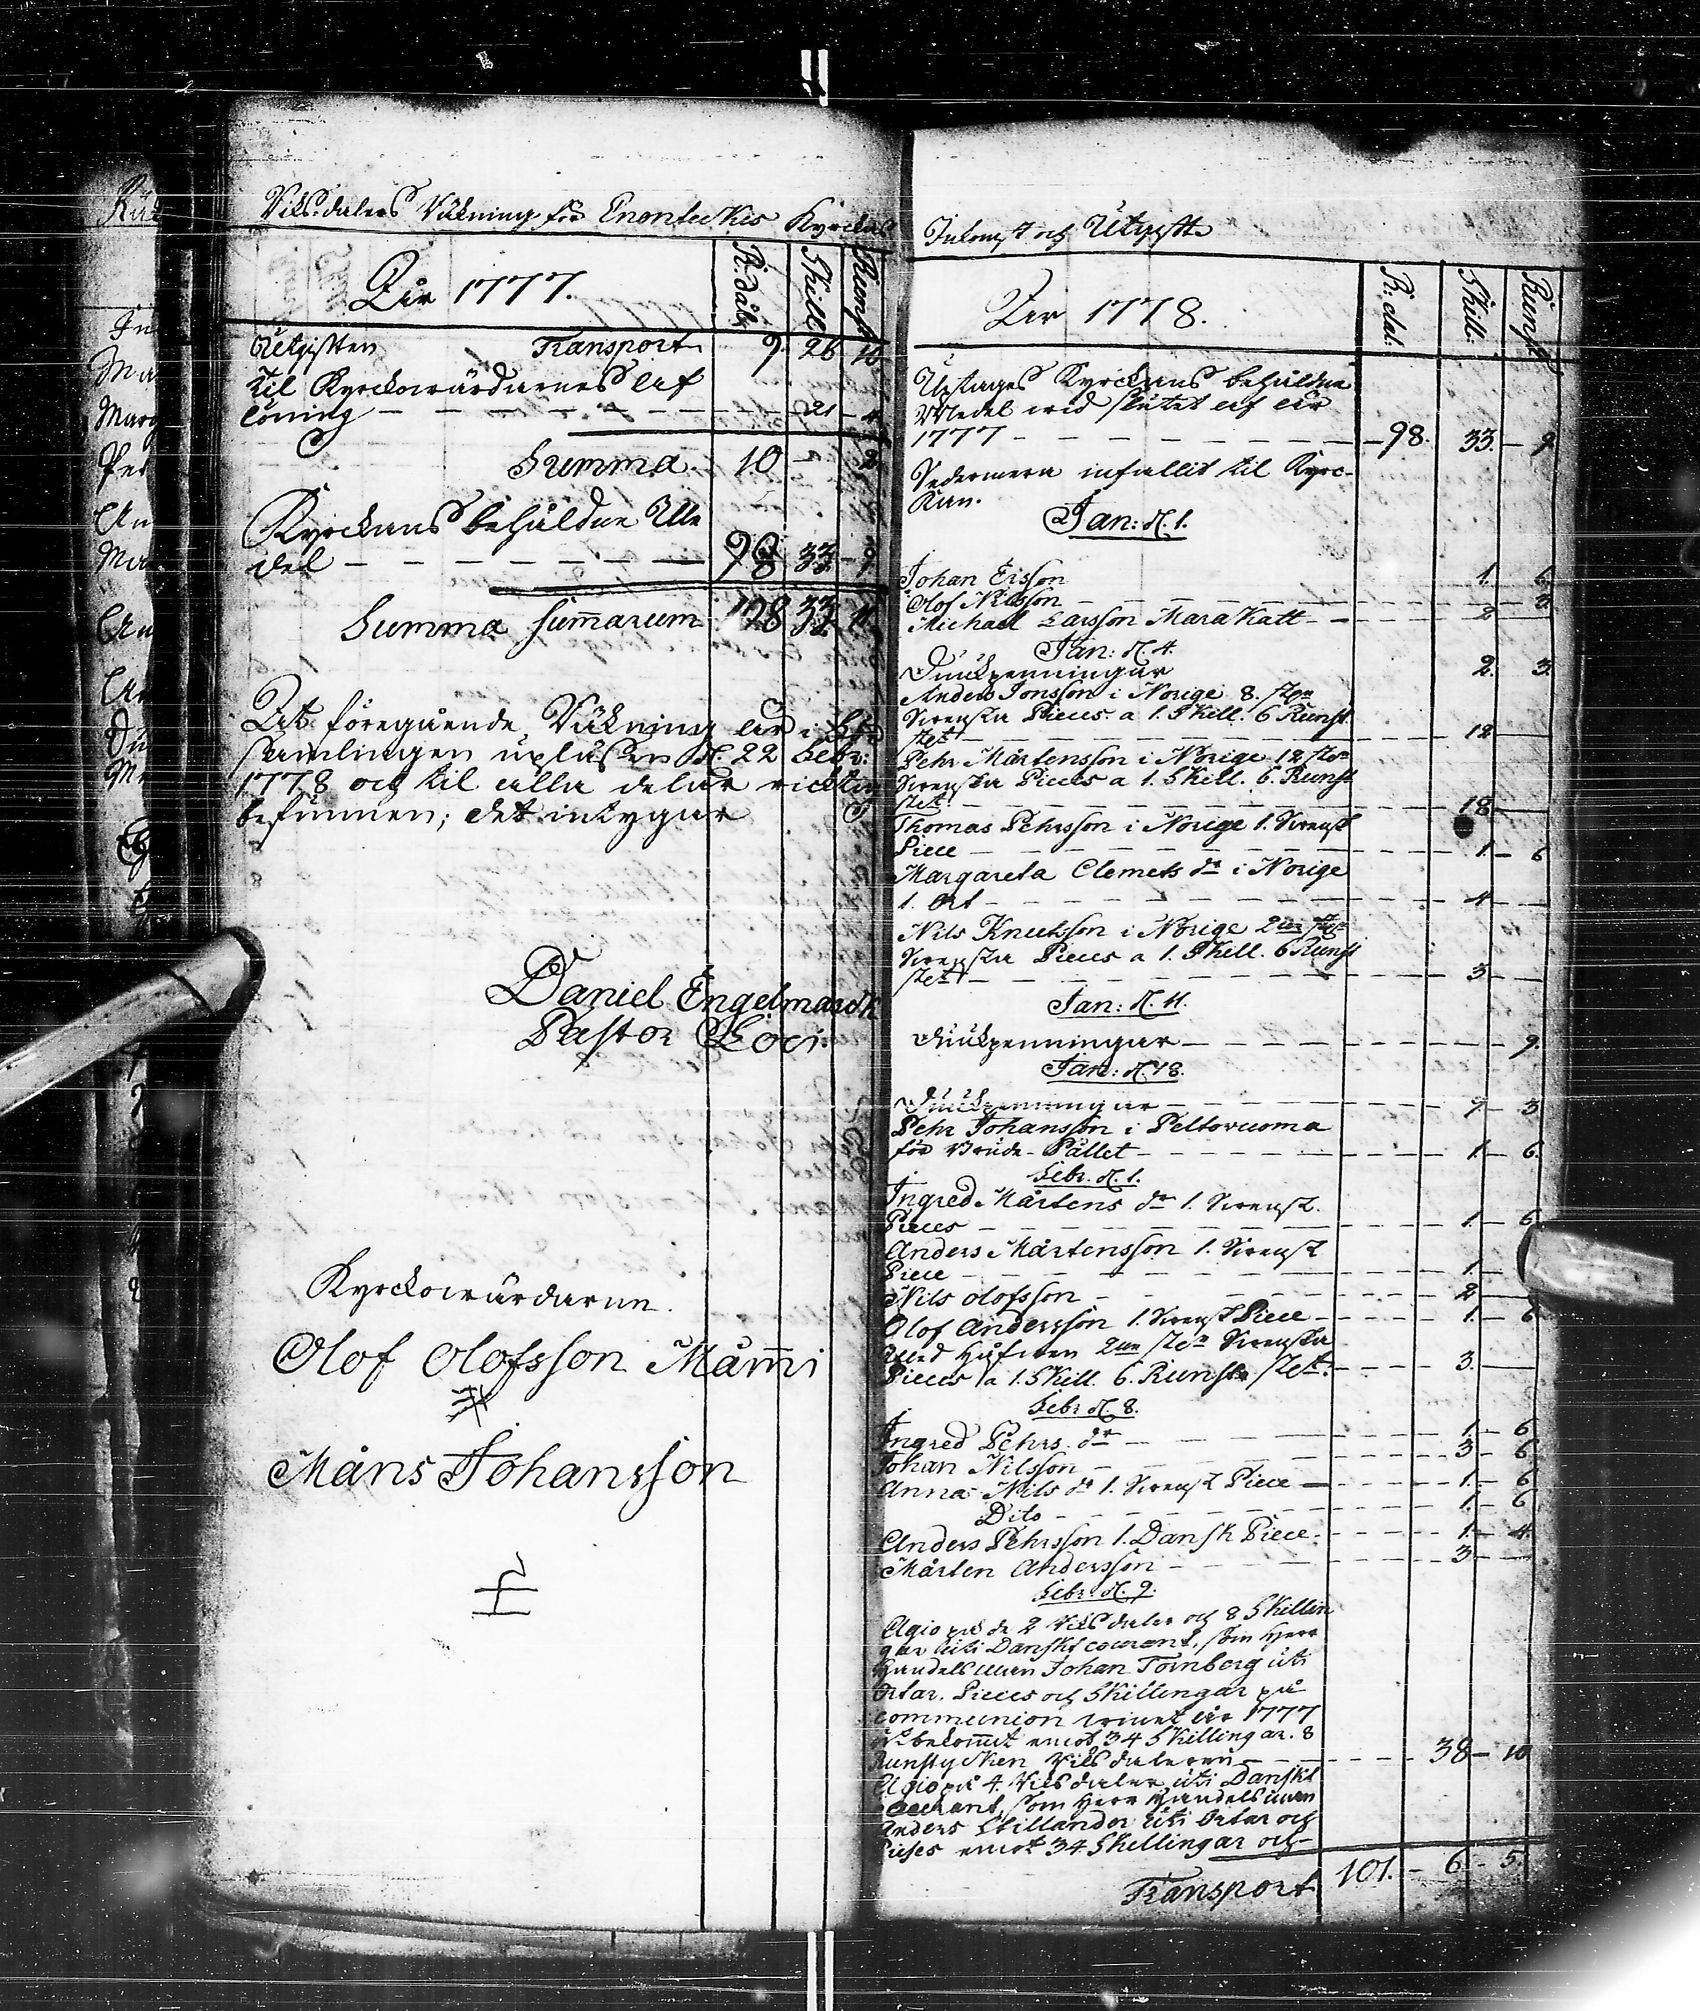 Riks-dalers Räkning för Enontekis Kyrckas
År 1777.
R:dalr Skill: Runst:
Utgiften Transport 9. 26 10
til Kyrckowärdarnes af
löning - - - 21 - 4
Summa. 10 - 2
Kyrckans behåldne Me
del - - - 98 33 - 9.
Summa summarum 108 33 11.
At föregående Räkning är i för
samlingen upläsen d. 22 Febr:
1778 och til alla delar richtig
befunnen; det intygar
Daniel Engelmarck
Pastor Loci.
Kyrckowärdarne.
Olof Olofsson Mämi
Måns Johansson
Inkomst och Utgift
År 1778.
R:dal. Skill. Runst:
Uptages Kyrckans behåldne
Medel wid slutet af år
1777 - - - 98. 33. - 9
Sedermera infallit til Kyrc-
kan.
Jan: d. 1.
Johan Ersson 1. 6.
Olof Nilsson - - - 3
Michael Larsson Marakatt - - 2 -
Jan: d. 4.
Tackpenningar 2. 3.
Anders Jonsson i Norige 8. st:n
Swenska Pieces. a 1. Skill. 6 Runst.
st:t - - - 12 -
Pehr Mårtensson i Norige 12 st:n
Swenska Pieces a 1. Skill. 6. Runst
st:t - - - 18 -
Thomas Pehrsson i Norige 1. Swensk
Piece - - - 1. - 6
Margareta Clemets dr i Norige
1. Ort - - - 4 -
Nils Knutsson i Norige 2ne st:n
Swenska Pieces a 1. Skill. 6 Runst
st:t - - - 3 -
Jan: d. 11.
Tackpenningar - - - 9.
Jan: d. 18.
Tackpenningar - - - 7 - 3
Pehr Johansson i Peltovuoma
för Brude-Pället - - - 1. - 6.
Febr. d. 1.
Ingred Mårtens dr 1. Swensk.
Pieces - - - 1. - 6
Anders Mårtensson 1. Swensk
Piece - - - 1. -
Nils Olofsson - - - 2
Olof Andersson 1. Swensk Piece - 1. - 6
Med Håfwen 2ne st:n Swenska
Pieces a 1. Skill. 6. Runst. st:t. - - 3. -
Febr d. 8.
Ingred Pehrs. dr - - - 1. - 6
Johan Nilsson - - - 3 - 6
Anna Nils dr 1. Swensk Piece - 1. - 6
Dito - - - 1. - 6
Anders Pehrsson 1. Dansk Piece. - - 1. - 4.
Mårten Andersson - - - 3 -
Febr. d. 9.
Agio på de 2 Riksdaler och 8 Skillin
gar uti Danskt courant, som Herr
Handelsman Johan Tornberg uti
Ortar. Pieces och Skillingar på
communion winet år 1777
bekommit emot 34 Skillingar. 8
Runstycken Riksdaleren - - - 38 - 10
Agio på 4. Riksdaler uti Danskt
Courant, som Herr Handelsman
Anders uti Ortar och
Pieses emot 34 Skillingar och
Transport 101. - 6 - 5.